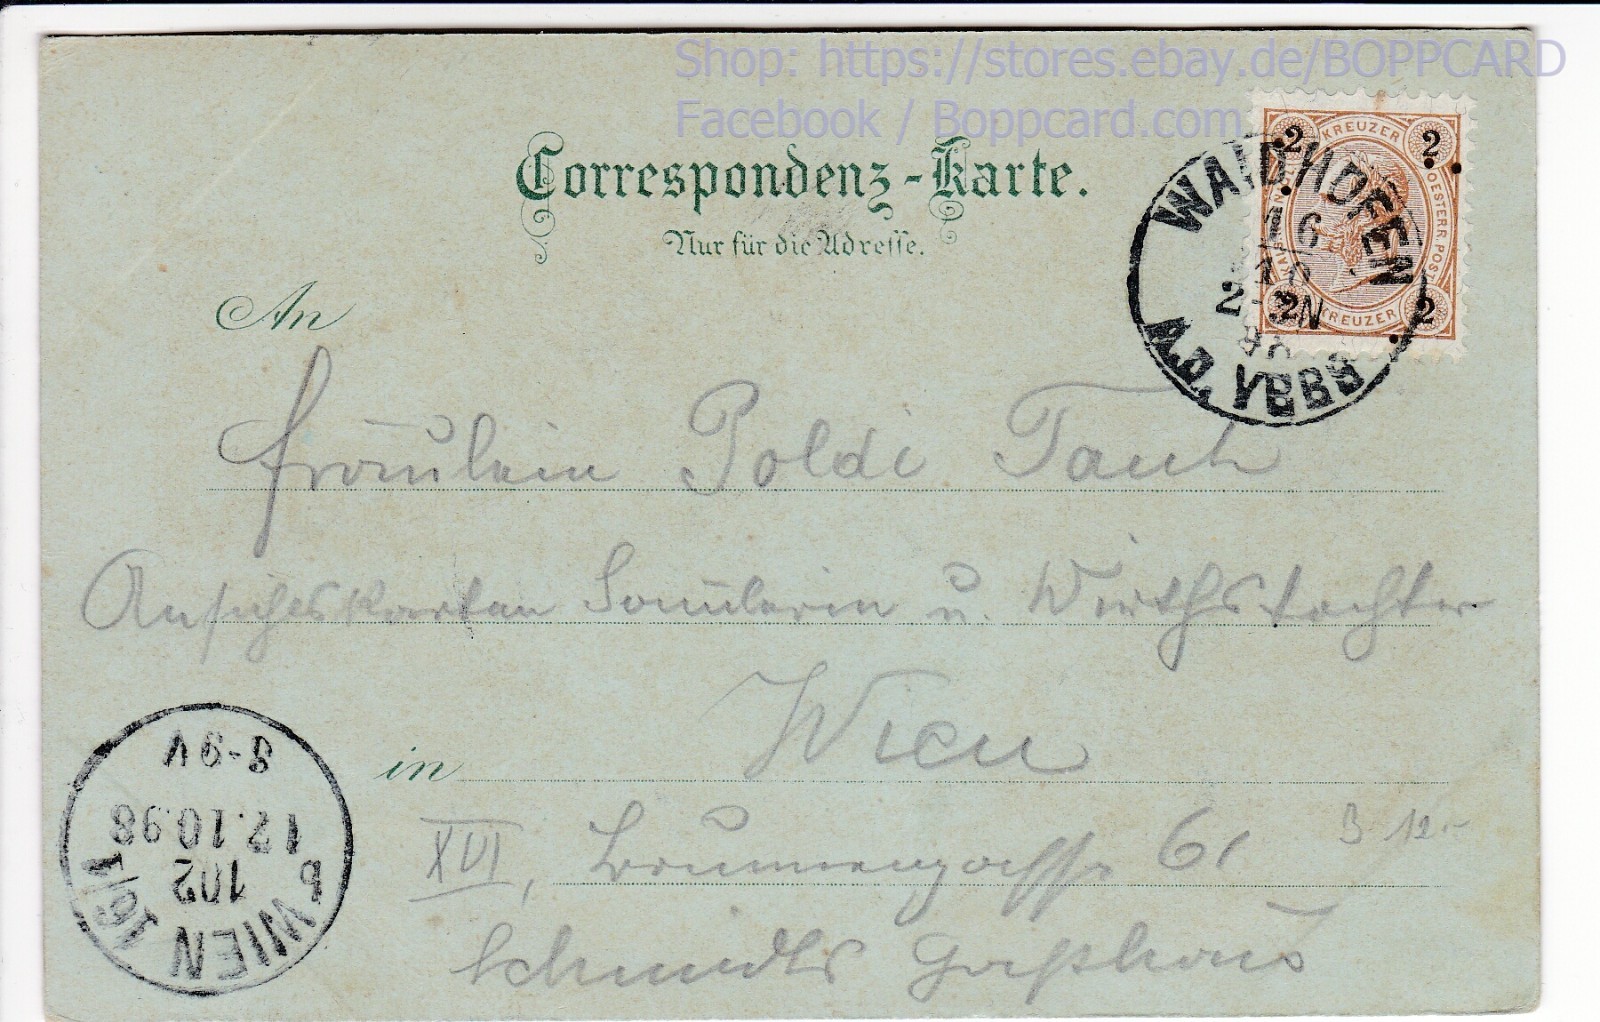 Shop: https://stores.ebay.de/BOPPCARD
Facebook / Boppcard.com
Correspondenz-Karte.
Nur für die Adresse.
2 KREUZER 2
2 KREUZER 2
WAIDHOFEN
16
10
2-3N
98
A.D. YBBS
An
Fräulein Poldi
Ansichtskarten u. Wirthstochter
in Wien
XVI, Brunnengasse 61
Schmidts Gasthaus
B 12.-
8-9V
17.10.98
102
WIEN 16/1